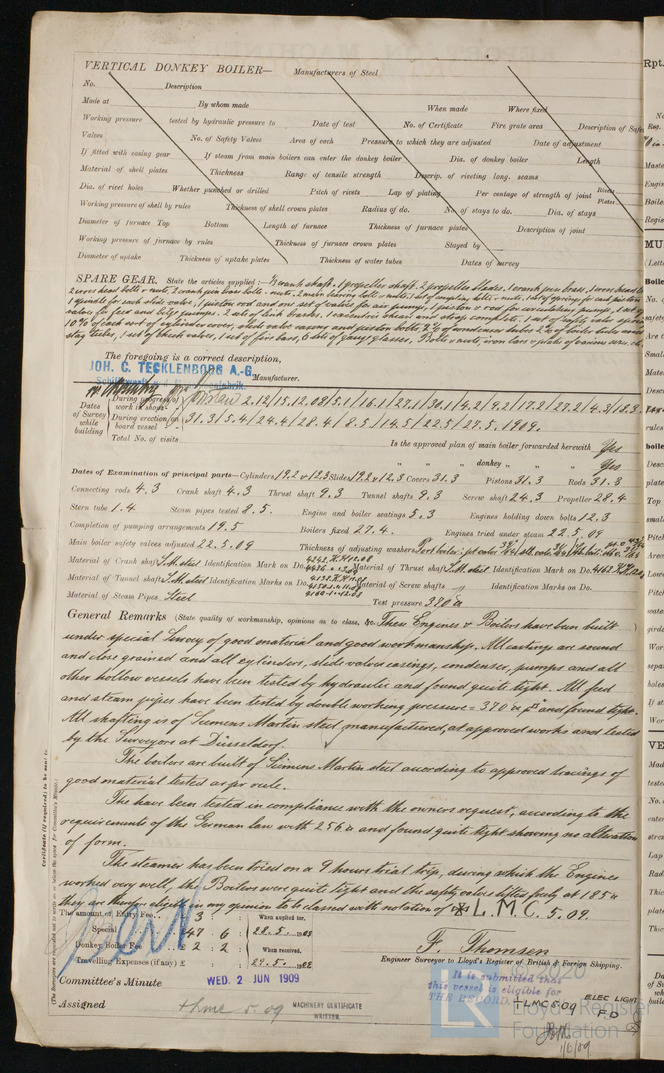 VERTICAL DONKEY BOILER— Manufacturers of Steel
No. Description
Made at By whom made When made Where fixed
Working pressure tested by hydraulic pressure to Date of test No. of Certificate Fire grate area Description of Safe
Valves No. of Safety Valves Area of each Pressure to which they are adjusted Date of adjustment
If fitted with easing gear If steam from main boilers can enter the donkey boiler Dia. of donkey boiler Length
Material of shell plates Thickness Range of tensile strength Descrip. of riveting long. seams
Dia. of rivet holes Whether punched or drilled Pitch of rivets Lap of plating Per centage of strength of joint Rivets Plates
Working pressure of shell by rules Thickness of shell crown plates Radius of do. No. of stays to do. Dia. of stays
Diameter of furnace Top Bottom Length of furnace Thickness of furnace plates Description of joint
Working pressure of furnace by rules Thickness of furnace crown plates Stayed by
Diameter of uptake Thickness of uptake plates Thickness of water tubes Dates of survey
SPARE GEAR. State the articles supplied :— 1/3 crank shaft. 1 propeller shaft. 2 propeller blades. 1 crank pin brass.
2 cross head bolts & nuts, 2 crank pin bolts & nuts, 2 main bearing bolts & nuts, 1 set of coupling bolts & nuts, 1 set of springs for each piston
1 spindle for each slide valve, 1 piston rod and for air pump, 1 piston & rod for circulating pump, 1 set of
valves for feed and bilge pumps. 2 sets of link brasses. 1 excentric sheave and strap complete.
10% of each sort of cylinder cover, slide valve casing and piston bolts 2% of condenser tubes 2% of boiler tubes
stay tubes, 1 set of check valves, 1 set of fire bars, 6 sets of gauge glasses. Bolts & nuts, iron bars & plates of various sizes.
The foregoing is a correct description,
JOH. C. TECKLENBORG A.-G. Manufacturer.
Dates of Survey while building
During progress of work in shops 2.12/15.12.08/5.1/16.1/27.1/30.1/4.2/9.2/17.2/27.2/4.3/12.3
During erection on board vessel 31.3/5.4/24.4/28.4/8.5/14.5/22.5/27.5.1909.
Total No. of visits Is the approved plan of main boiler forwarded herewith Yes
" " " donkey " " " Yes
Dates of Examination of principal parts—Cylinders 19.2 & 12.3 Slides 19.2 & 12.3 Covers 31.3 Pistons 31.3 Rods 31.3
Connecting rods 4.3 Crank shaft 4.3 Thrust shaft 9.3 Tunnel shafts 9.3 Screw shaft 24.3 Propeller 28.4
Stern tube 1.4 Steam pipes tested 8.5. Engine and boiler seatings 5.3 Engines holding down bolts 12.3
Completion of pumping arrangements 19.5 Boilers fixed 27.4. Engines tried under steam 22.5.09
Main boiler safety valves adjusted 22.5.09 Thickness of adjusting washers
Material of Crank shaft S.M. steel Identification Mark on Do. Material of Thrust shaft S.M. steel Identification Mark on Do.
Material of Tunnel shafts S.M. steel Identification Marks on Do. Material of Screw shafts Identification Marks on Do.
Material of Steam Pipes Steel Test pressure 370 lbs
General Remarks (State quality of workmanship, opinions as to class, &c. These Engines & Boilers have been built
under special Survey of good material and good workmanship. All castings are sound
and close grained and all cylinders, slide valve casings, condenser, pumps and all
other hollow vessels have been tested by hydraulic and found quite tight. All feed
and steam pipes have been tested by double working pressure = 370 and found tight.
All shafting is of Siemens Martin steel manufactured, at approved works and tested
by the Surveyors at Düsseldorf.
The boilers are built of Siemens Martin steel according to approved tracings of
good material tested as per rule.
The have been tested in compliance with the owners request, according to the
requirements of the German law with 256 lbs and found quite tight showing no alteration
of form.
The steamer has been tried on a 9 hours trial trip, during which the Engines
worked very well, the Boilers were quite tight and the safety valves lifted freely at 185 lbs
they are in my opinion to be classed with notation of ✠ L.M.C. 5.09.
The amount of Entry Fee .. £ 3 : : When applied for,
Special .. £ 47 : 6 : 28.5.1909
Donkey Boiler Fee .. £ 2 : 2 : When received,
Travelling Expenses (if any) £ : : 29.5.
F. Thomsen
Engineer Surveyor to Lloyd's Register of British & Foreign Shipping.
Committee's Minute WED. 2 JUN 1909
It is submitted that
this vessel is eligible for
THE RECORD. + LMC 5.09 ELEC LIGHT
F.D
Assigned + LMC 5.09
MACHINERY CERTIFICATE
WRITTEN.
1/6/09
2020
Lloyd's Register
Foundation